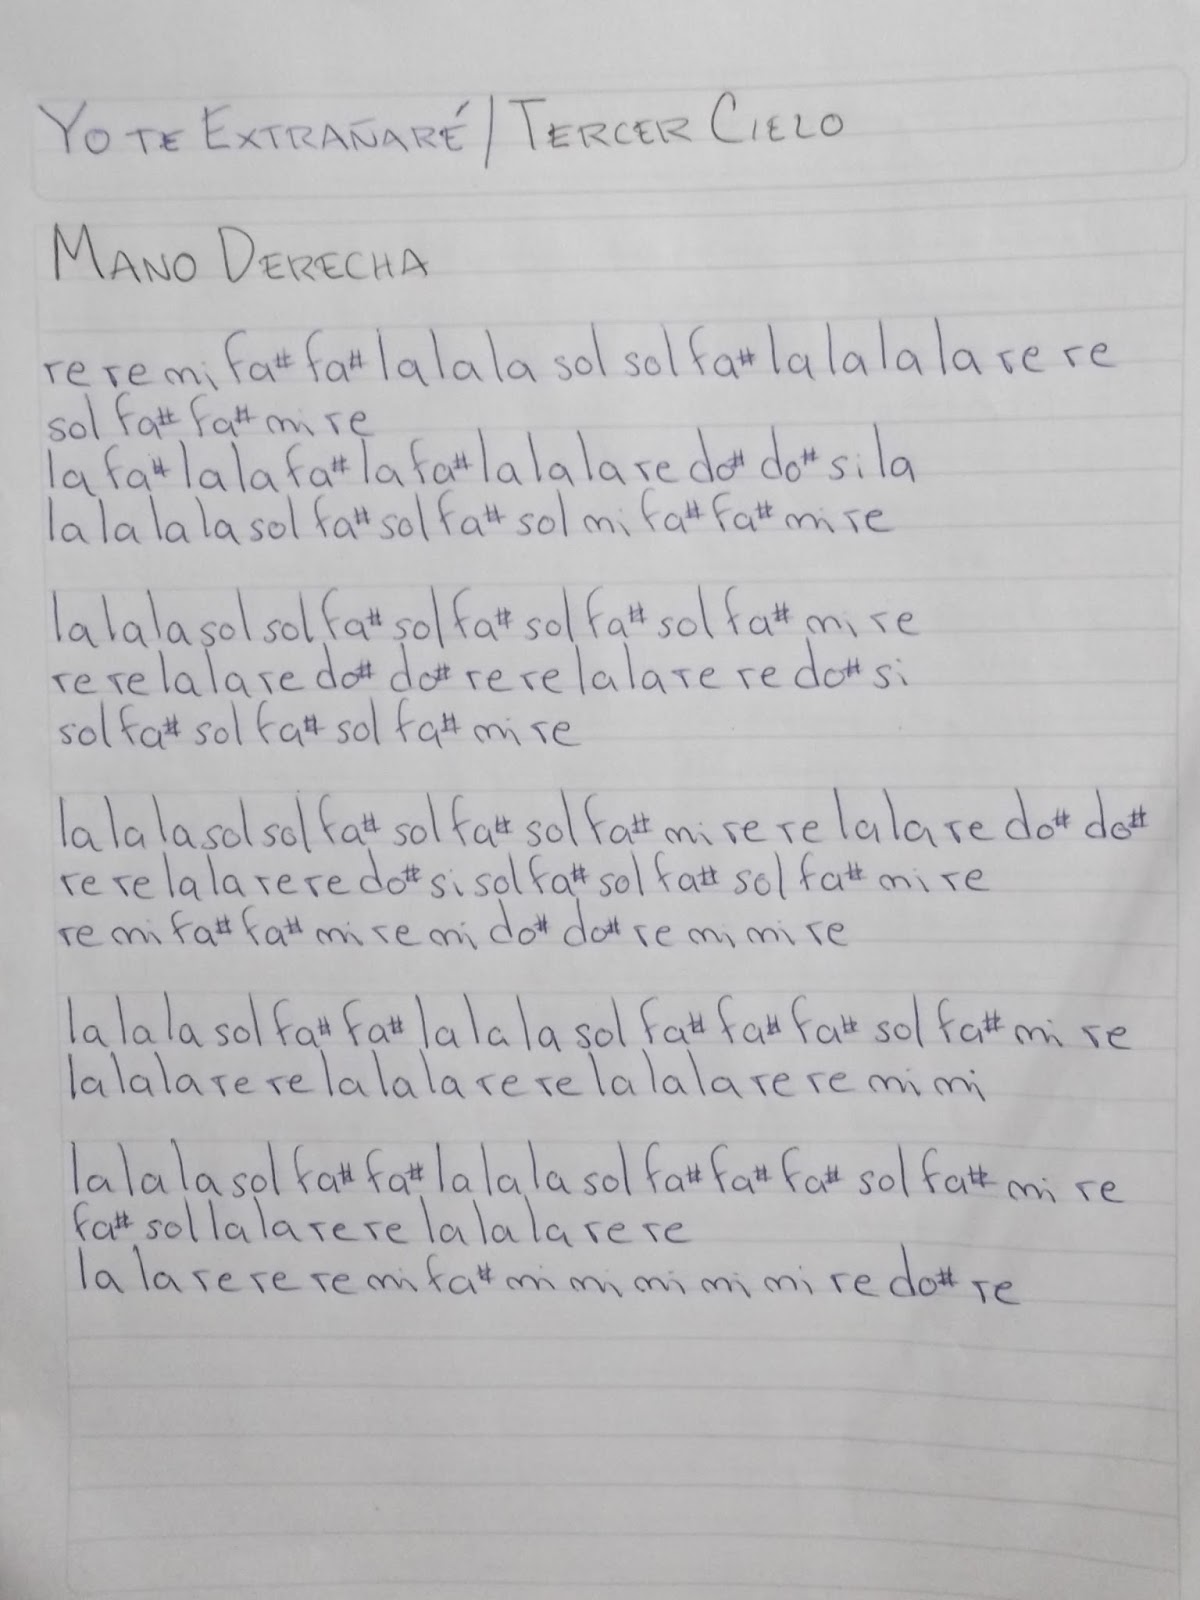 YO TE EXTRAÑARÉ / TERCER CIELO
MANO DERECHA
re re mi fa# fa# la la la sol sol fa# la la la la re re
sol fa# fa# mi re
la fa# la la fa# la fa# la la la re do# do# si la
la la la la sol fa# sol fa# sol mi fa# fa# mi re
la la la sol sol fa# sol fa# sol fa# sol fa# mi re
re re la la re do# do# re re la la re re do# si
sol fa# sol fa# sol fa# mi re
la la la sol sol fa# sol fa# sol fa# mi re re la la re do# do#
re re la la re re re do# si sol fa# sol fa# sol fa# mi re
re mi fa# fa# mi re mi do# do# re mi mi re
la la la sol fa# fa# la la la sol fa# fa# fa# sol fa# mi re
la la la re re la la la re re la la la re re mi mi
la la la sol fa# fa# la la la sol fa# fa# fa# sol fa# mi re
fa# sol la la re re la la la re re
la la re re re mi fa# mi mi mi mi mi re do# re